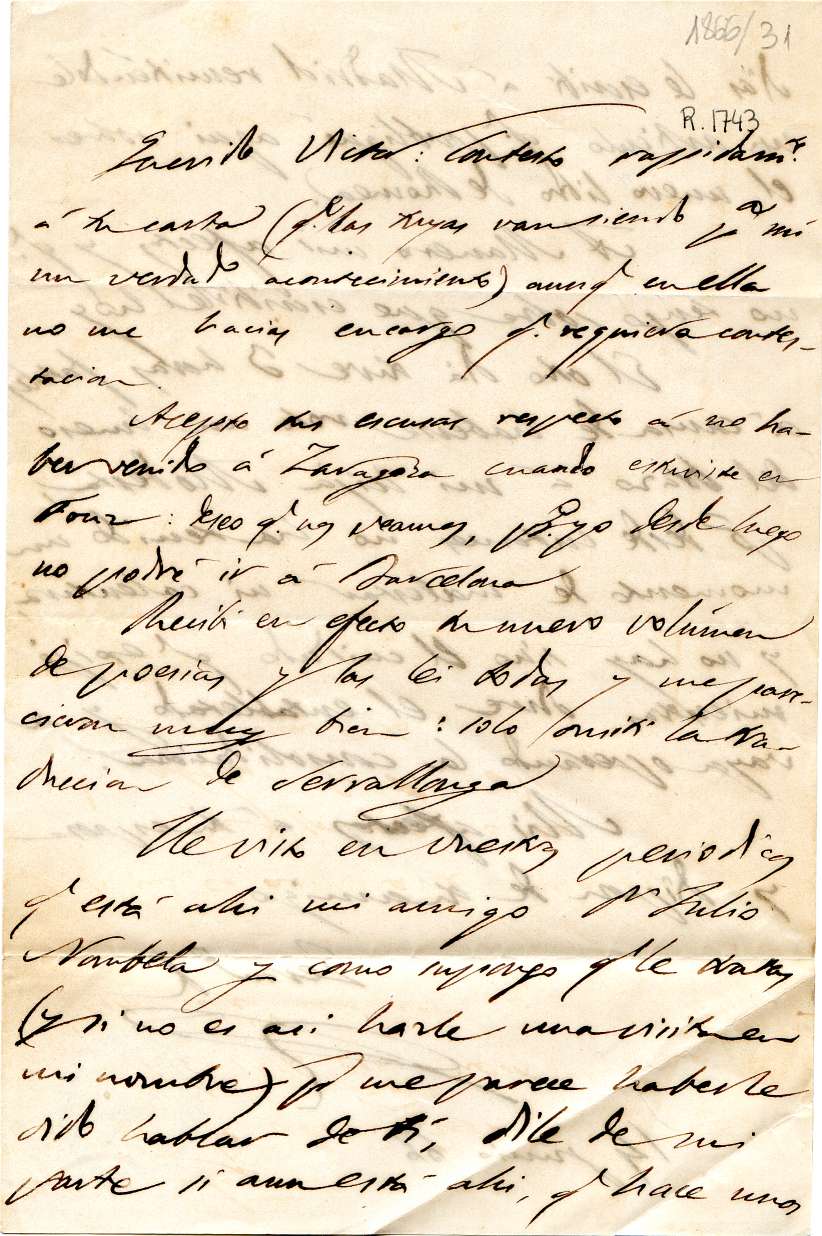 1866/31
R. 1743
Querido Victor: Contesto rappidamte.
á tu carta (q. las tuyas van siendo pa mi
un verdado acontecimiento) aunq. en ella
no me hacias encargo q. requiera contes-
tacion.
Acepto tus escusas respecto á no ha-
ber venido á Zaragoza cuando estuviste en
Fonz: deseo q. nos veamos, po. yo desde luego
no podré ir á Barcelona
Recibi en efecto tu nuevo volúmen
de poesias y las lei todas y me pare-
cieron muy bien: solo omiti la tra-
duccion de Serrallonga
He visto en vuestros periodicos
q. está ahi mi amigo Dn Julio
Nombela y como supongo q. le tratas
(y si no es asi hazle una visita en
mi nombre) pq. me parece haberle
oido hablar de ti, dile de mi
parte si aun está ahi, q. hace unos